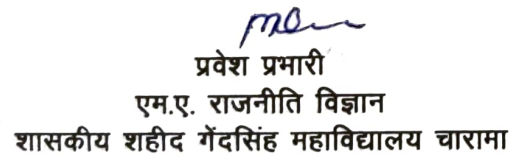 प्रवेश प्रभारी
एम.ए. राजनीति विज्ञान
शासकीय शहीद गेंदसिंह महाविद्यालय चारामा